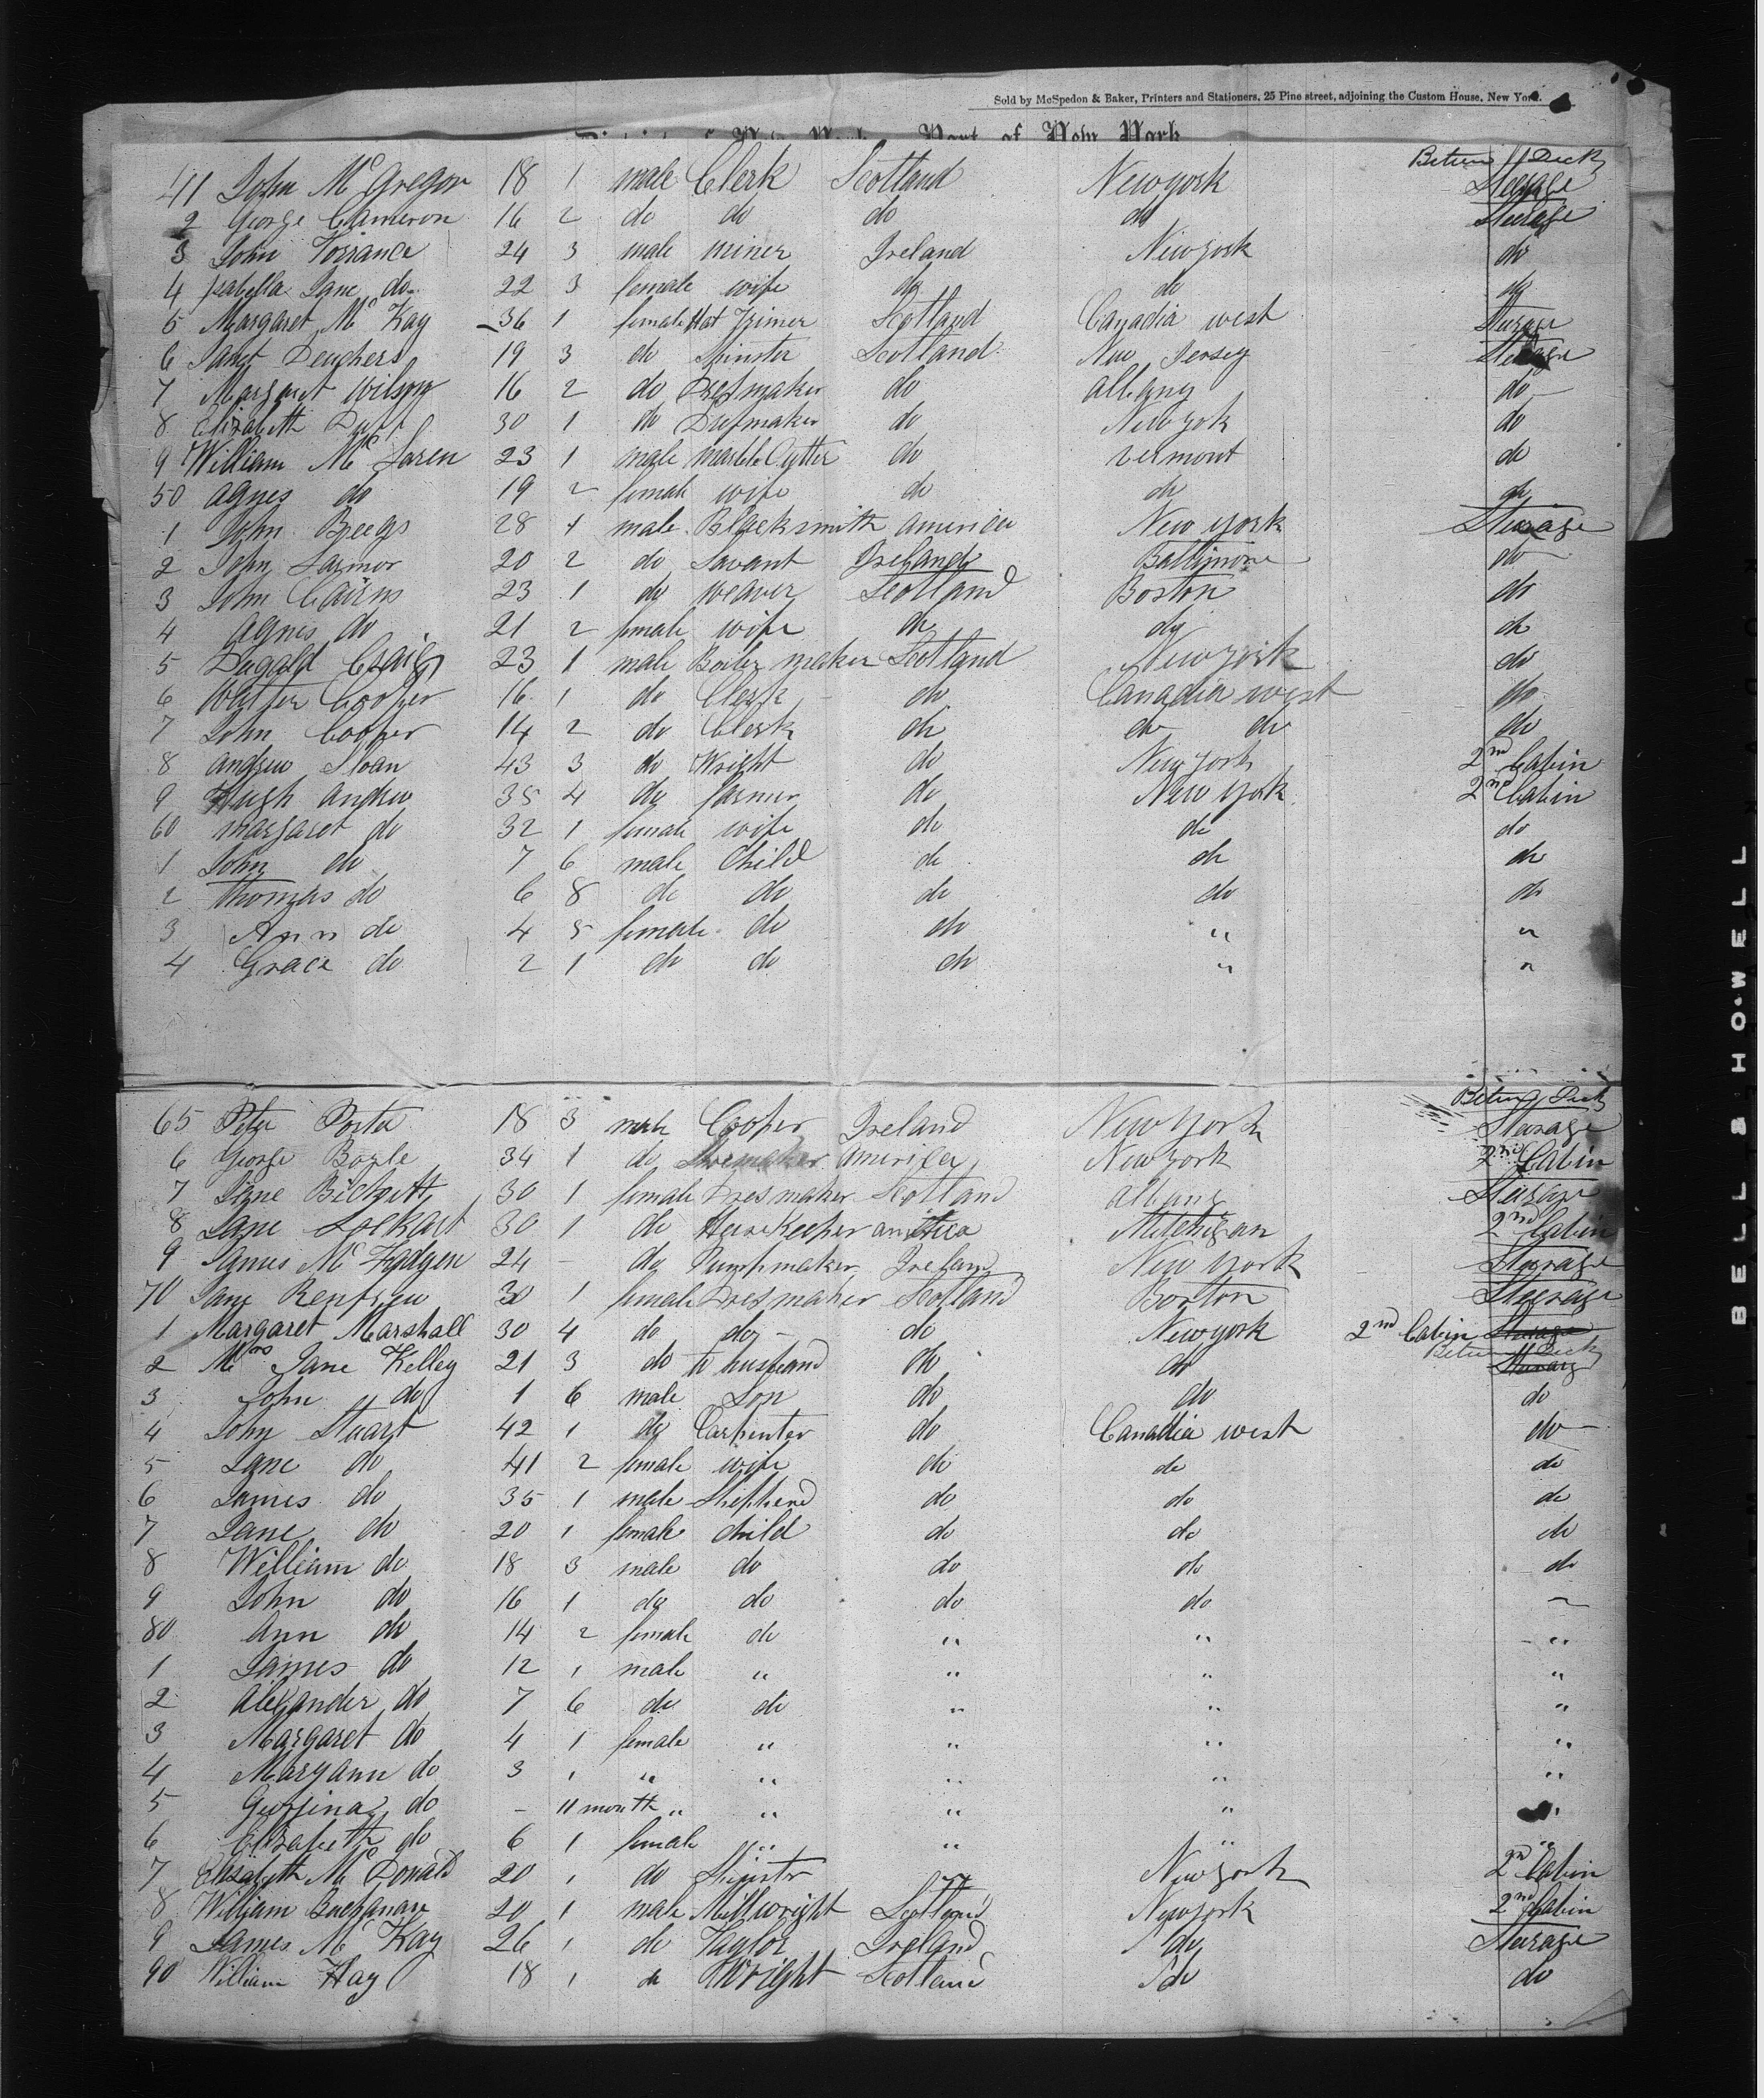 Sold by McSpedon & Baker, Printers and Stationers, 25 Pine street, adjoining the Custom House, New York.
Port of New York
Between Decks
41 John McGregor 18 1 male Clerk Scotland Newyork Steerage
2 George Cameron 16 2 do do do do Steerage
3 John Torrance 24 3 male miner Ireland Newyork do
4 Isabella Jane do 22 3 female wife do do do
5 Margaret McKay 36 1 female Hat Trimer Scotland Canadia west Steerage
6 Janet Deuchers 19 3 do Spinster Scotland New Jersey Steerage
7 Margaret Wilson 16 2 do Dresmaker do albany do
8 Elizabeth Duff 30 1 do Dresmaker do Newyok do
9 William McLaren 23 1 male marble Cutter do vermont do
50 agnes do 19 2 female wife do do do
1 John Beegs 28 1 male Blacksmith america New york Steerage
2 John Larmor 20 2 do Savant Ireland Baltimore do
3 John Cairns 23 1 do weaver Scotland Boston do
4 agnes do 21 2 female wife do do do
5 Dugald Craig 23 1 male Boiler maker Scotland Newyork do
6 Walter Cooper 16 1 do Clerk do Canadia west do
7 John Cooper 14 2 do Clerk do do do do
8 andrew Sloan 43 3 do Wright do Newyork 2nd Cabin
9 Hugh andrew 35 4 do farmer do New york 2nd Cabin
60 margaret do 32 1 female wife do do do
1 John do 7 6 male Child do do do
2 Thomas do 6 8 do do do do do
3 Ann do 4 5 female do do " "
4 Grace do 2 1 do do do " "
Between Decks
65 Peter Porter 18 3 male Cooper Ireland Newyork Steerage
6 George Boyle 34 1 do Shoemaker america Newyork 2nd Cabin
7 Jane Bicket 30 1 female Dresmaker Scotland albany Steerage
8 Jane Lockhart 30 1 do HouseKeeper america Mitchigan 2nd Cabin
9 James McFadgen 24 - do Pumpmaker Ireland New york Steerage
70 Jane Renfrew 30 1 female Dresmaker Scotland Boston Steerage
1 Margaret Marshall 30 4 do do do Newyork 2nd Cabin Steerage
Between Decks
2 Mrs Jane Kelley 21 3 do to husband do do Steerage
3 John do 1 6 male Son do do do
4 John Stuart 42 1 do Carpinter do Canadia west do
5 Jane do 41 2 female wife do do do
6 James do 35 1 male Shepherd do do do
7 Jane do 20 1 female child do do do
8 William do 18 3 male do do do do
9 John do 16 1 do do do do
80 Ann do 14 2 female do " " "
1 James do 12 1 male " " " "
2 alexander do 7 6 do do " " "
3 Margaret do 4 1 female " " " "
4 Maryann do 3 1 " " " " "
5 do - 11 month " " " " "
6 Elizabeth do 6 1 female " " "
7 Elizabeth McDonald 20 1 do Spinster Newyork 2nd Cabin
8 William Buchanan 20 1 male Millwright Scotland Newyork 2nd Cabin
9 James McKay 26 1 do Taylor Ireland do Steerage
90 William Hay 18 1 do Wright Scotland do do
BELL & HOWELL